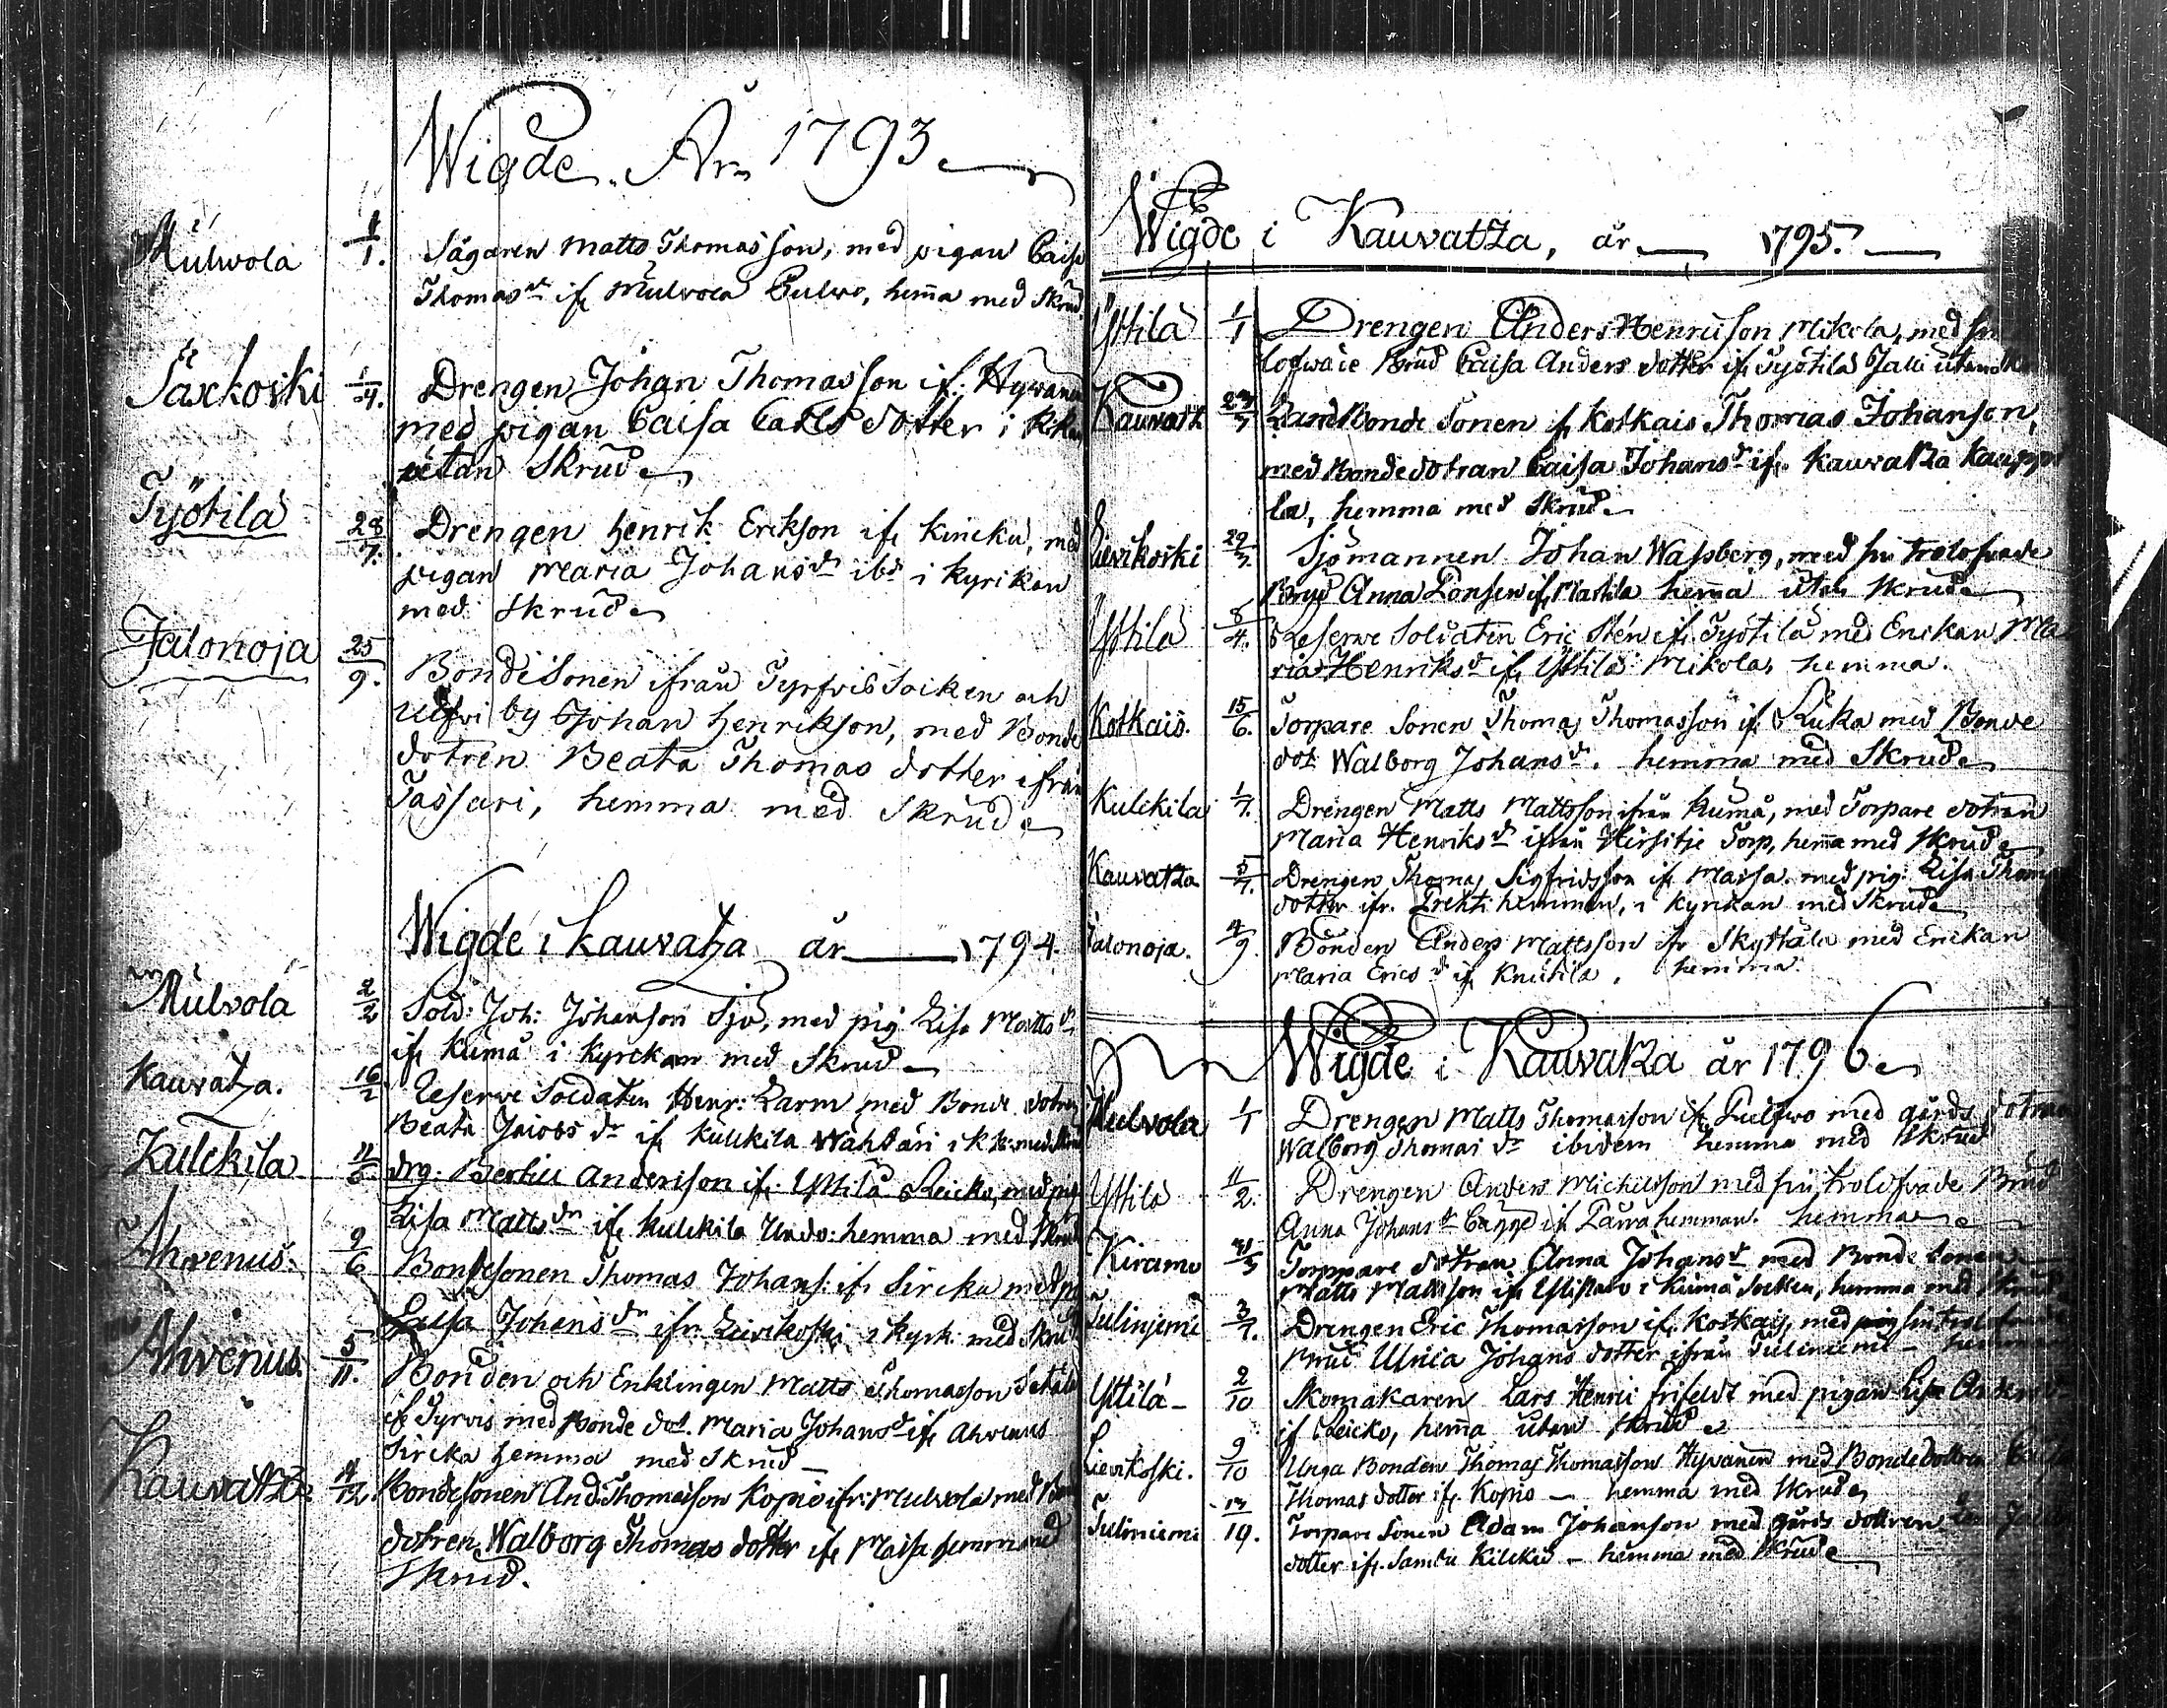 Wigde År 1793
Mulvola 1/1. Sågaren Matts Thomasson, med pigan Caisa
Thomas dr ifr Mulvola Pulwo, hem̄a med Skrud.
Säxkoski 1/4. Drengen Johan Thomasson ifr. Hyvänen
med pigan Caisa Carls dotter i
utan Skrud
Työtilä 28/7. Drengen Henrik Erikson ifr Kincku, med
pigan Maria Johans dr ibd i Kyrikan
med Skrud
Jalonoja 25/9. Bondesonen ifrån Tyrfvis Socken och
by Johan Henrikson, med Bonde
dotren Beata Thomas dotter ifrån
Tassari, hemma med Skrud
Wigde i Kauvatza år 1794.
Mulvola 2/2 Sold: Joh: Johanson Sjö, med pig Lisa Matts dr
ifr Kumå i Kyrckan med Skrud
Kauvatza. 16/2 Reserve Soldaten Henr: Larm med Bonde dotren
Beata Jacobs dr ifr Kulckila Wähätäri i K k: med Skrud
Kulckila 11/5. drg: Bertill Andersson ifr. Yttilä Reicko, med pig
Lisa Matts dr ifr Kulckila Undo: hemma med Skrud
Ahvenus 9/6 Bondesonen Thomas Johans: ifr Sircka med pig
Johans dr ifr. Lievikoski i kyrk. med Skrud
Ahvenus. 5/11. Bonden och Enklingen Matts Thomasson
ifr Tyrvis med Bonde dot. Maria Johans d ifr Ahvenus
Sircka hemma med Skrud
Kauvatza /12. Bondesonen And: Thomasson Kopio ifr: Mulvola med Bonde
dotren Walborg Thomas dotter ifr Maisa hemma med
Skrud.
Wigde i Kauvatza, år 1795.
Yttilä 1/1 Drengen Anders Henricson Mikola, med sin
Brud Caisa Anders dotter ifr Työtilä Jalli utan
Kauvatz Landbonde Sonen ifr Kotkais Thomas Johanson,
med Bondedotran Caisa Johans dr ifr. Kauvatza Kauppi
la, hemma med Skrud
Lievikoski 29/3. Sjömannen Johan Wassberg, med sin trolofvade
Brud Anna ifr Mattila hem̄a utan Skrud
Yttilä 8/4. Reserve Soldaten Eric Stén ifr. Työtilä med Enckan Ma
ria Henriks d ifr Yttilä Mikola, hemma.
Kotkais. 15/6. Torpare Sonen Thomas Thomasson ifr Ruka med Bonde
dot Walborg Johans d. hemma med Skrud
Kulckila 1/7. Drengen Matts Mattsson ifrån Kumå, med Torpare dotran
Maria Henriks dr ifrån Torp, hem̄a med Skrud
Kauvatza 5/7. Drengen Thomas Sigfridsson ifr Maisa. med pig: Lisa Thomas
dotter ifr. hemman, i kyrckan med Skrud
Jalonoja. 4/9. Bonden Anders Mattsson ifr Skyttälä med Enckan
Maria Erics d ifr Knuutila, hemma.
Wigde i Kauvatza år 1796
Mulvola 1/1 Drengen Matts Thomasson ifr. Pullwo med gårds dotran
Walborg Thomas dr ibidem hemma med Skrud
Yttilä 11/2. Drengen Anders Michelsson med sin trolofvade Brud
Anna Johans dr ifr hemman. hemma
Kiramo Torppare dotran Anna Johans d med Bonde Sonen
Matts Mattsson ifr i Kumå Socken, hemma med Skrud
Tulinjemi 3/7. Drengen Eric Thomasson ifr. Kotkais, med sin trolofvade
Brud Ulrica Johans dotter ifrån Tuliniemi - hemma
Yttilä 2/10 Skomakaren Lars Henric Frifeldt med pigan Lisa Anders d
ifr Reicko, hem̄a utan Skrud
Lievikoski. 9/10 Unga Bonden Thomas Thomasson Hyvänen med Bondedottren
Thomas dotter ifr. Kopio - hemma med Skrud
Tuliniemi Torpare Sonen Adam Johanson med gårds dottren
dotter ifr. - hemma med Skrud